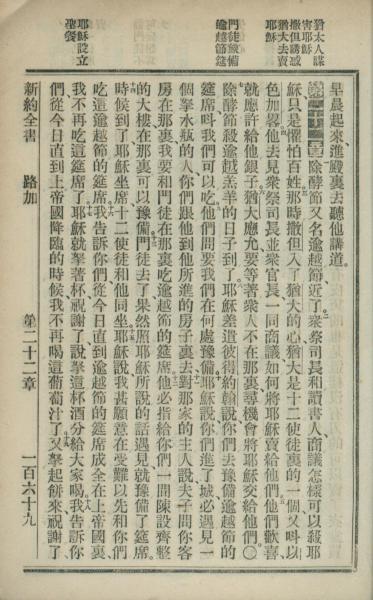 猶太人謀
害耶穌
撒但誘惑
猶大去賣
耶穌
門徒豫備
逾越節筵
耶穌設立
聖餐
早晨起來、進殿裏去聽他講道。
除酵節又名逾越節、近了、衆祭司長和讀書人、商議怎樣可以殺耶
穌、只是懼怕百姓、那時撒但入了猶大的心、猶大是十二使徒裏的一個、又呌以
色加畧、他去見衆祭司長並衆官長、一同商議如何將耶穌賣給他們、他們歡喜、
就應許給他銀子、猶大應允、要等着衆人不在那裏、尋機會將耶穌交給他們〇
除酵節殺逾越羔羊的日子到了、耶穌差遣彼得約翰說、你們去豫備逾越節的
筵席、呌我們可以吃、他們問要我們在何處豫備、耶穌說、你們進了城、必遇見一
個拏水瓶的人、你們跟他到他所進的房子裏去、對那家的主人說、夫子問你客
房在那裏、我要和門徒在那裏吃逾越節的筵席、他必指給你們一間陳設齊整
的大樓、在那裏可以豫備、門徒去了、果然照耶穌所說的話遇見、就豫備了筵席。
時候到了、耶穌坐席、十二使徒和他同坐、耶穌說、我甚願意在受難以先、和你們
吃這逾越節的筵席、我告訴你們、從今日直到逾越節的筵席成全在上帝國裏、
我不再吃這筵席了、耶穌就拏着杯祝謝了說、拏這杯酒分給大家喝、我告訴你
們、從今日直到上帝國降臨的時候、我不再喝這葡萄汁了、又拏起餅來祝謝了、
新約全書 路加 第二十二章 一百六十九